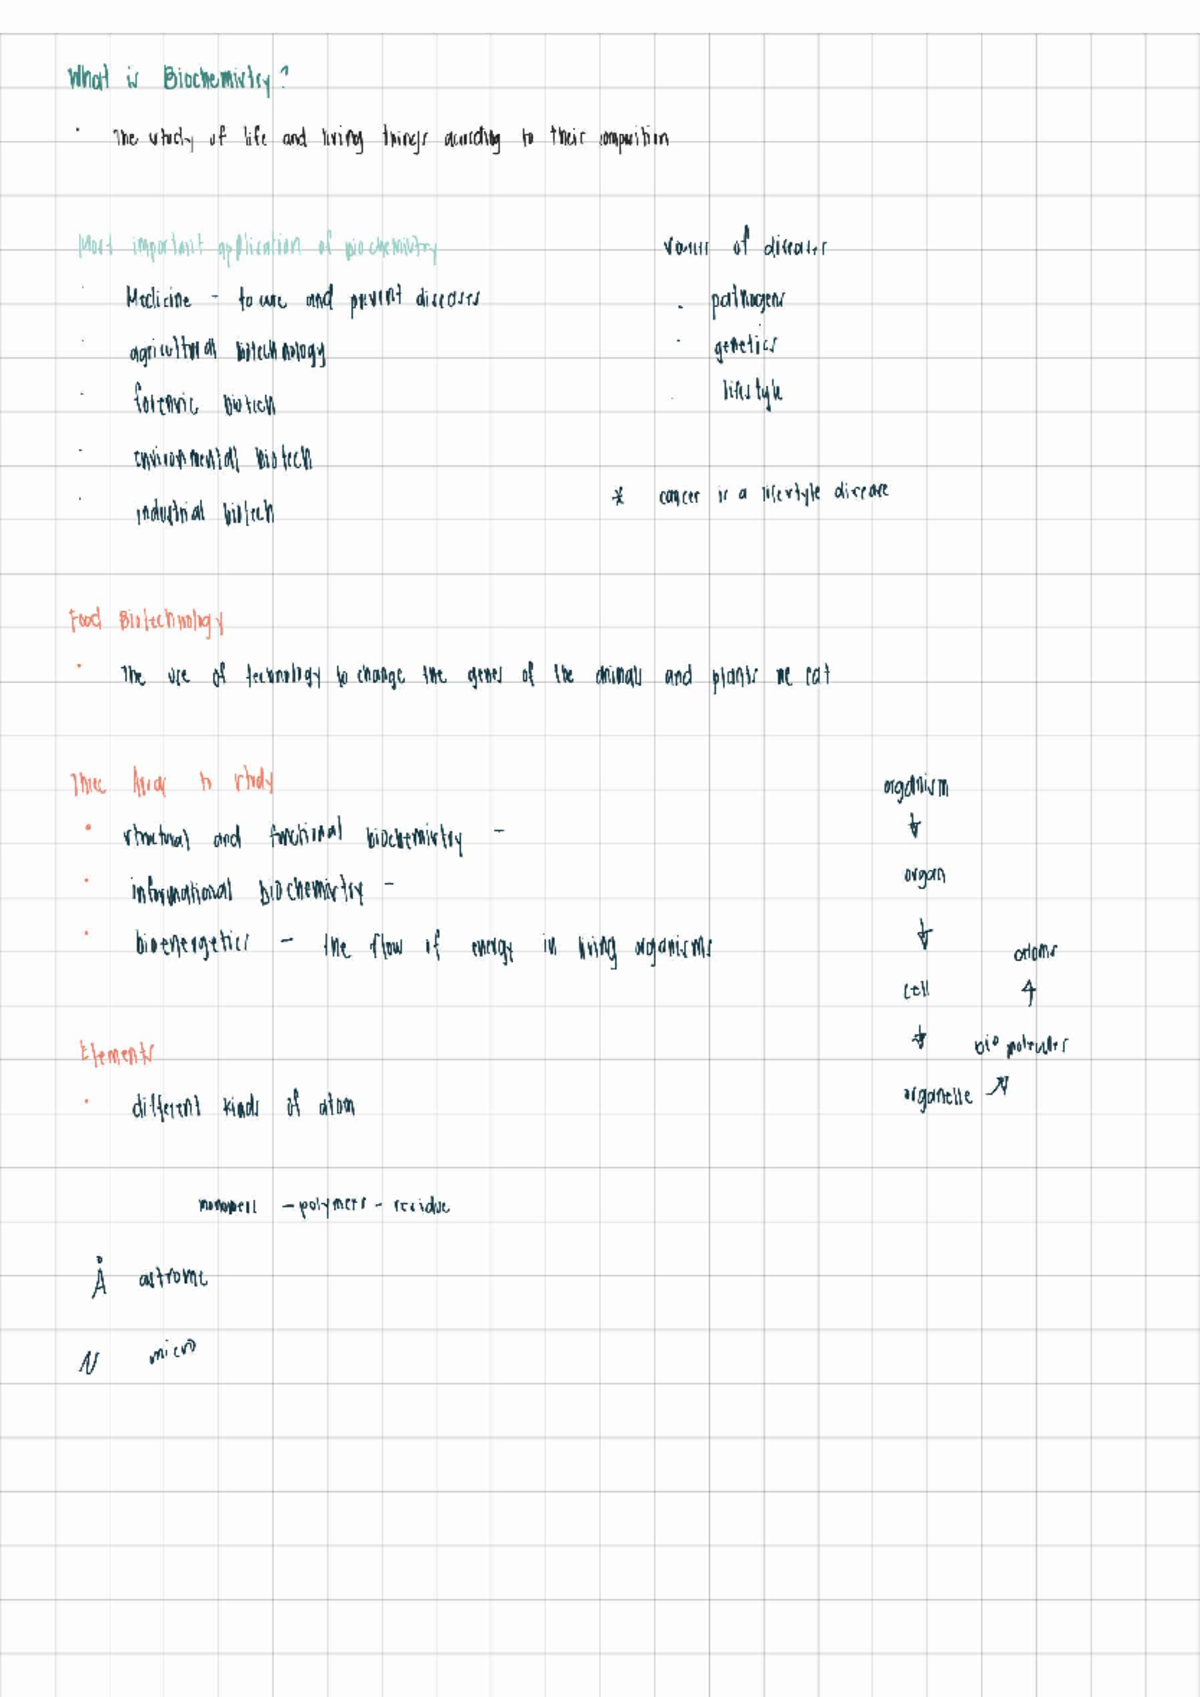 What is Biochemistry?
• The study of life and living things according to their composition
Most important application of biochemistry
• Medicine - to cure and prevent diseases
• agricultural biotechnology
• forensic biotech
• environmental biotech
• industrial biotech
of diseases
• pathogens
• genetics
• lifestyle
* cancer is a lifestyle disease
Food Biotechnology
• The use of technology to change the genes of the animals and plants we eat
Three Areas to study
• structural and functional biochemistry -
• informational biochemistry -
• bioenergetics - the flow of energy in living organisms
organism
↓
organ
↓
cell
↓
organelle ↗
bio molecules
↑
atoms
Elements
• different kinds of atom
- polymers - residue
Å astrome
micro